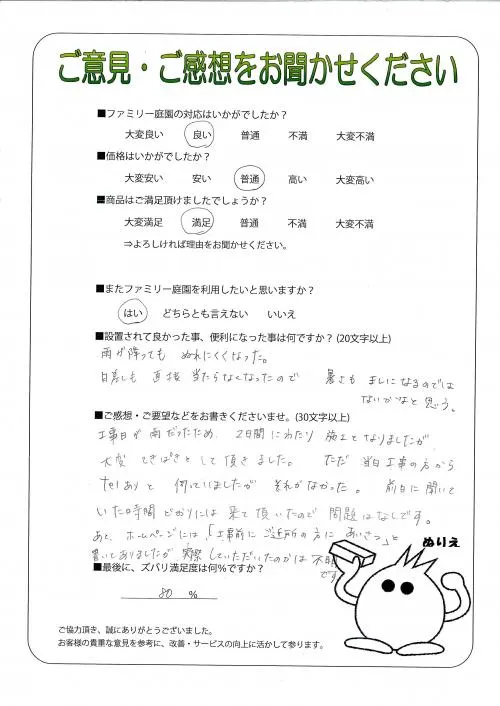 ご意見・ご感想をお聞かせください
■ファミリー庭園の対応はいかがでしたか？
大変良い 良い 普通 不満 大変不満
■価格はいかがでしたか？
大変安い 安い 普通 高い 大変高い
■商品はご満足頂けましたでしょうか？
大変満足 満足 普通 不満 大変不満
⇒よろしければ理由をお聞かせください。
■またファミリー庭園を利用したいと思いますか？
はい どちらとも言えない いいえ
■設置されて良かった事、便利になった事は何ですか？(20文字以上)
雨が降っても ぬれにくくなった。
日差しも 直接 当たらなくなったので 暑さも ましになるのでは
ないかなと 思う。
■ご感想・ご要望などをお書きくださいませ。(30文字以上)
工事日が 雨だったため、2日間にわたり 施工となりましたが、
大変 てきぱきとして頂きました。 ただ 当日工事の方から
telありと 伺っていましたが それがなかった。 前日に聞いて
いた時間どおりには 来て頂いたので 問題はなしです。
あと、ホームページには、「工事前に ご近所の方に あいさつ」と
書いてありましたが 実際していただいたのかは 不明
です
■最後に、ズバリ満足度は何％ですか？
80 %
ぬりえ
ご協力頂き、誠にありがとうございました。
お客様の貴重な意見を参考に、改善・サービスの向上に活かして参ります。